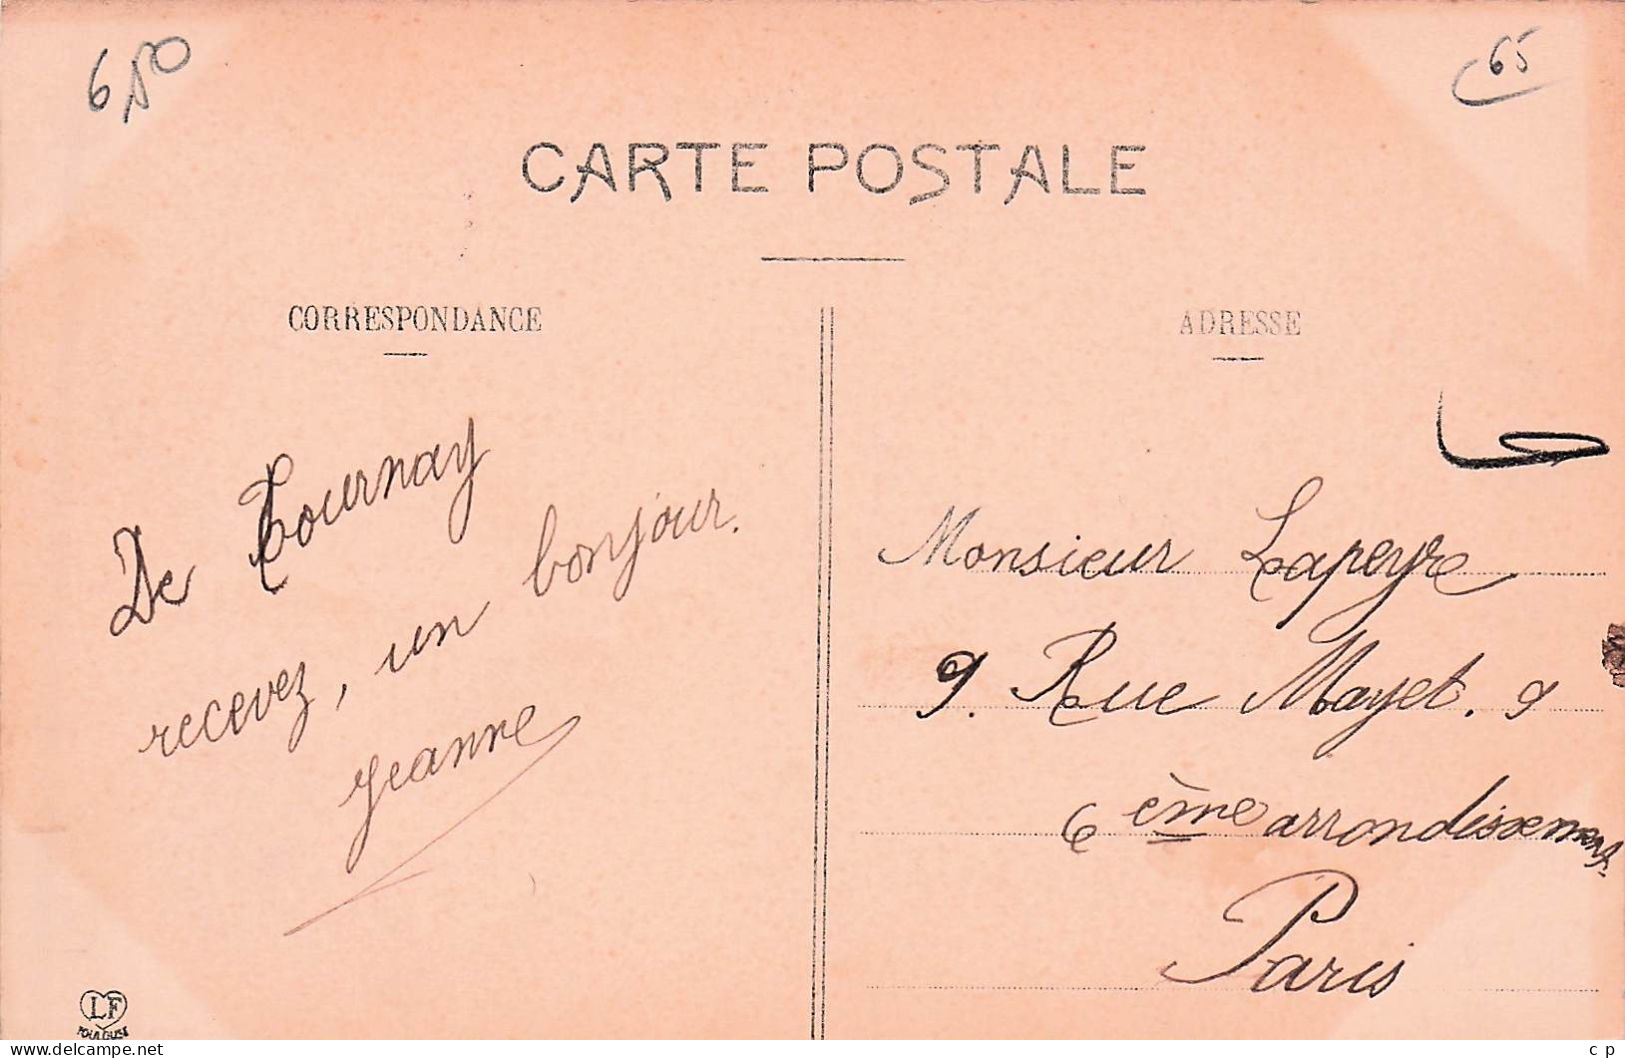 650
65
CARTE POSTALE
CORRESPONDANCE
ADRESSE
De Tournay
recevez, un bonjour.
Jeanne
Monsieur Lapeyre
9. Rue Mayet. 9
6 ème arrondissement
Paris
LF
TOULOUSE
©delcampe.net
c p